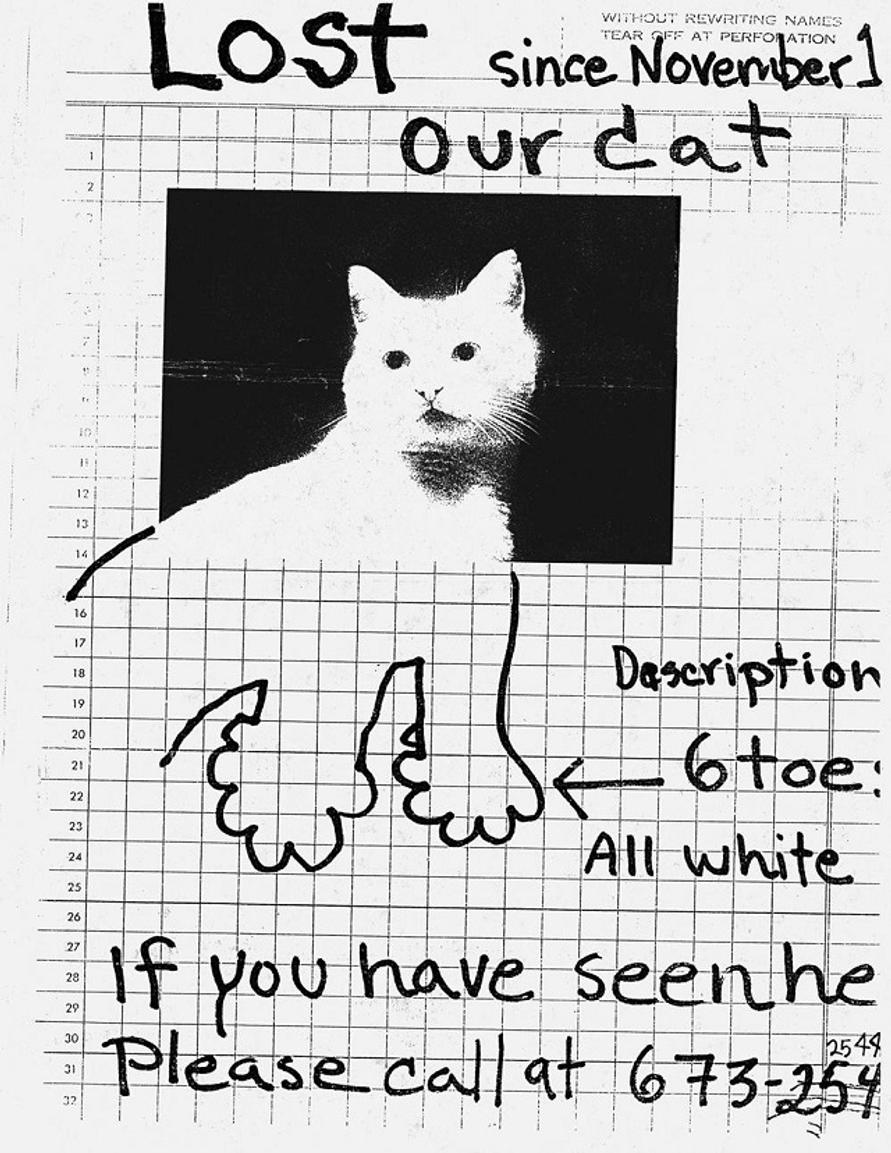 WITHOUT REWRITING NAMES
TEAR OFF AT PERFORATION
LOST
since November 1
our cat
1
2
7
10
11
12
13
14
16
17
18
19
20
21
22
23
24
25
26
27
28
29
30
31
32
Dascription
6 toe:
All white
If you have seen he
Please call at 673-254
2544